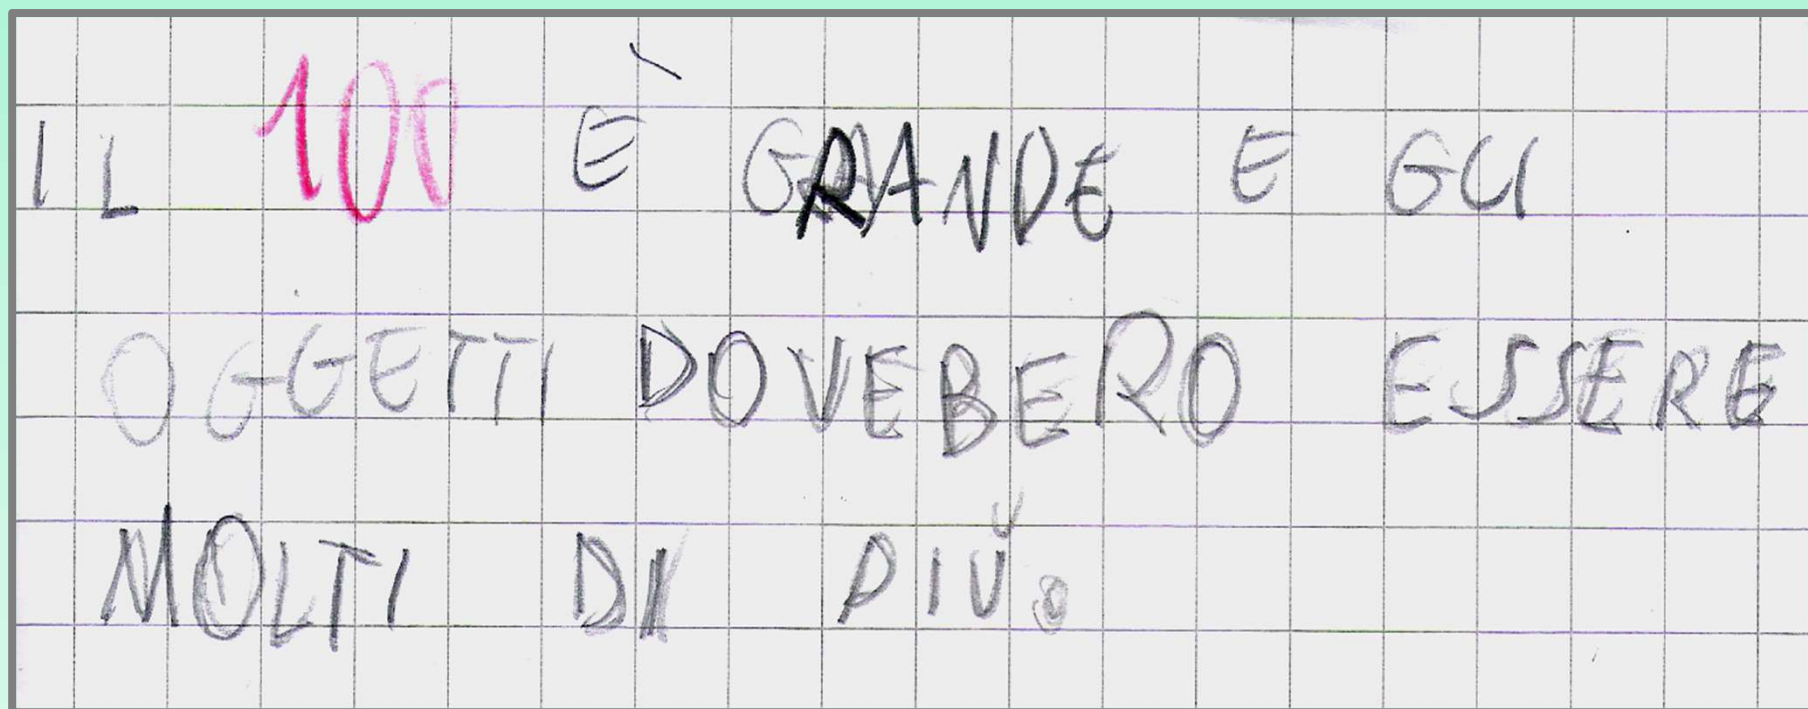 IL 100 È GRANDE E GLI
OGGETTI DOVEBERO ESSERE
MOLTI DI PIÙ.